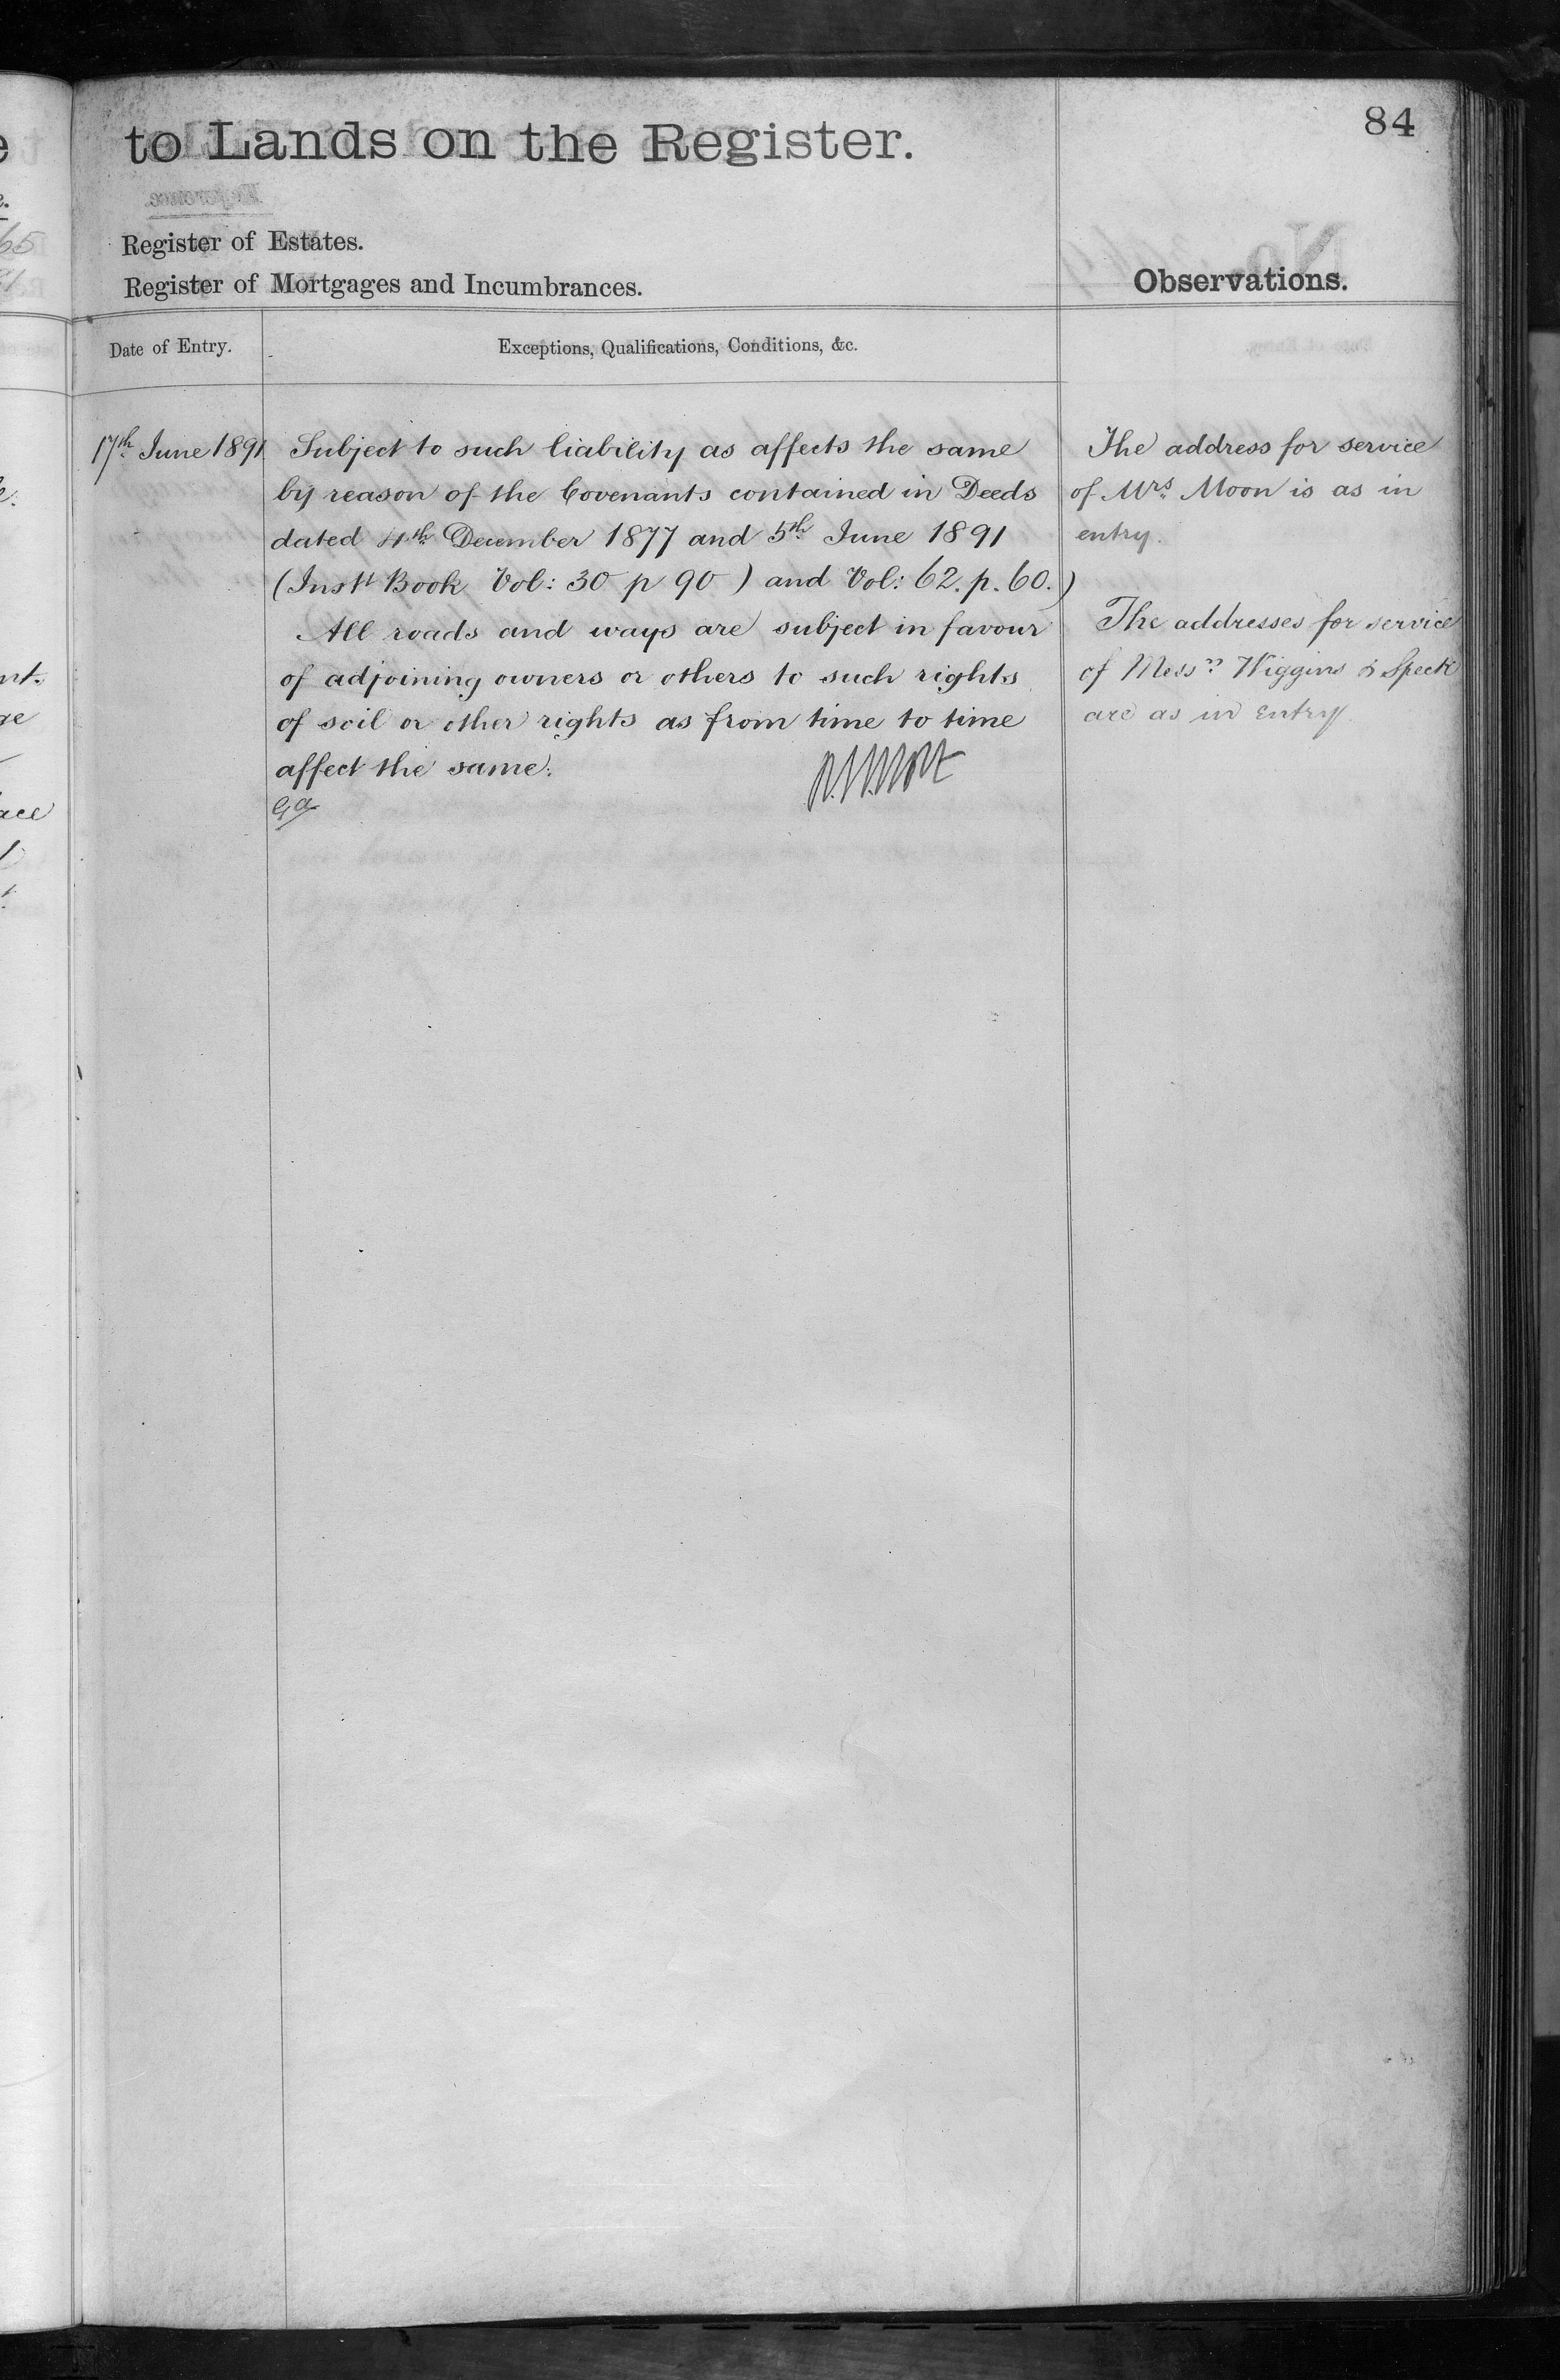 84
to Lands on the Register.
Register of Estates.
Register of Mortgages and Incumbrances.
Observations.
Date of Entry.
Exceptions, Qualifications, Conditions, &c.
17th June 1891
Subject to such liability as affects the same
by reason of the Covenants contained in Deeds
dated 4th December 1877 and 5th June 1891
(Inst Book Vol: 30 p 90) and Vol: 62. p. 60.)
All roads and ways are subject in favour
of adjoining owners or others to such rights
of soil or other rights as from time to time
affect the same.
The address for service
of Mrs Moon is as in
entry.
The addresses for service
of Messrs Wiggins & Speck
are as in entry.